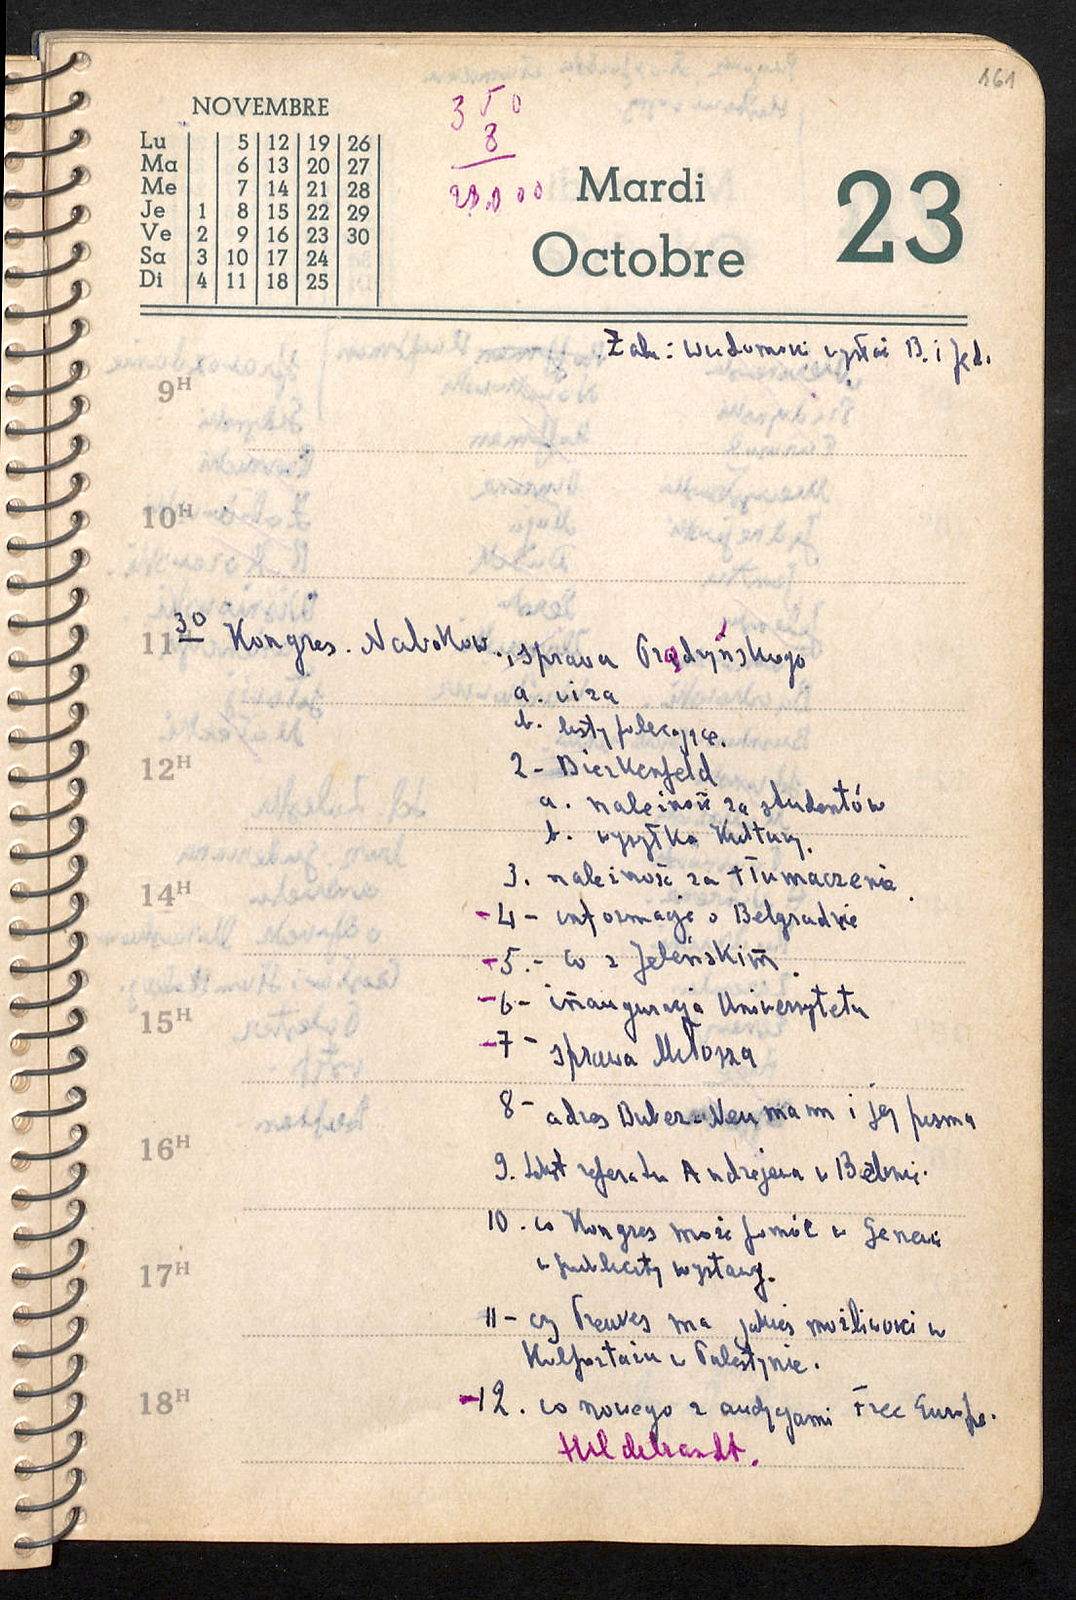 161
NOVEMBRE
Lu 5 12 19 26
Ma 6 13 20 27
Me 7 14 21 28
Je 1 8 15 22 29
Ve 2 9 16 23 30
Sa 3 10 17 24
Di 4 11 18 25
350
8
28.000
Mardi
Octobre
23
Zak: wysłać B. i Jed.
9H
10H
11H
30 Kongres. Nabokow. 1, sprawa Prądzyńskiego
a. viza
b. listy polecające.
12H
2- Bierkenfeld
a. należność za studentów
b. wysyłka Kultury.
3. należność za tłumaczenie.
14H
-4- informacje o Belgradzie
-5.- co z Jeleńskim.
-6- inauguracja Uniwersytetu
15H
-7- sprawa Miłosza
8- adres Buber-Neumann i jej pisma
16H
9. tekst referatu Andrzejewa w Berlinie.
10. co Kongres może pomóc w Genewie
w publicity wystawy.
17H
11- czy Preuves ma jakieś możliwości w
Kolportażu w Palestynie.
18H
-12. co nowego z audycjami Free Europe.
Hildebrandt.